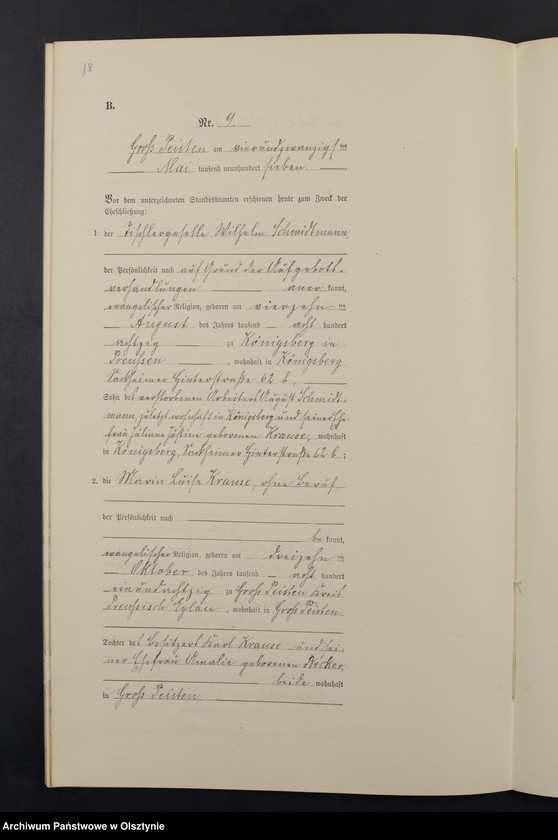 18
B.
Nr. 9.
Groß Peisten am vierundzwanzigsten
Mai tausend neunhundert sieben
Vor dem unterzeichneten Standesbeamten erschienen heute zum Zweck der
Eheschließung:
1. der Tischlergeselle Wilhelm Schmidtmann,
der Persönlichkeit nach auf Grund der Aufgebots-
verhandlungen anerkannt,
evangelischer Religion, geboren am vierzehnten
August des Jahres tausend achthundert
achtzig zu Königsberg in
Preussen, wohnhaft in Königsberg
Sackheimer Hinterstraße 62 b,
Sohn des verstorbenen Arbeiters August Schmidt-
mann, zuletzt wohnhaft in Königsberg und seiner Ehe-
frau Juliane Justine geborenen Krause, wohnhaft
in Königsberg, Sackheimer Hinterstraße 62 b;
2. die Marie Luise Krause, ohne Beruf
der Persönlichkeit nach
bekannt,
evangelischer Religion, geboren am dreizehnten
Oktober des Jahres tausend achthundert
einundachtzig zu Groß Peisten Kreis
Preussisch Eylau, wohnhaft in Groß Peisten
Tochter des Besitzers Karl Krause und sei-
ner Ehefrau Amalie geborenen
beide wohnhaft
in Groß Peisten
Archiwum Państwowe w Olsztynie